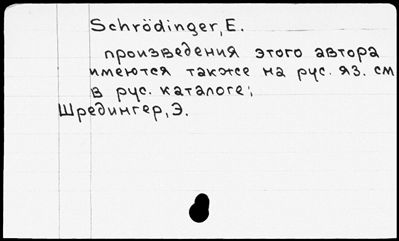 Schrödinger, E.
произведения этого автора
имеются также на рус. яз. см
в рус. каталоге;
Шредингер, Э.